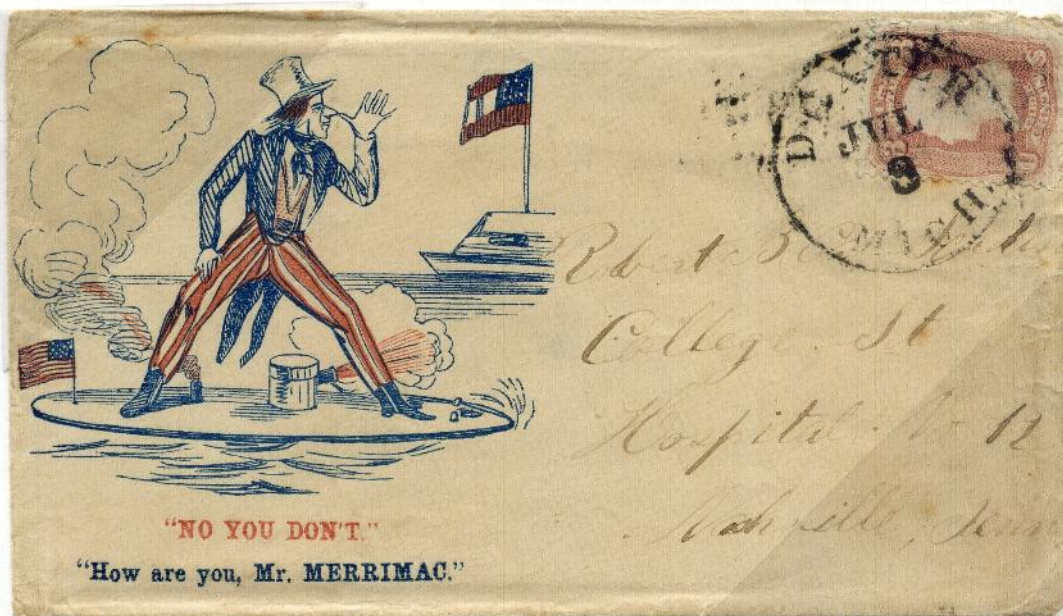 DEXTER
JUL
9
MICH.
Robert
College St
Hospital No 12
Nashville, Tenn
"NO YOU DON'T."
"How are you, Mr. MERRIMAC."